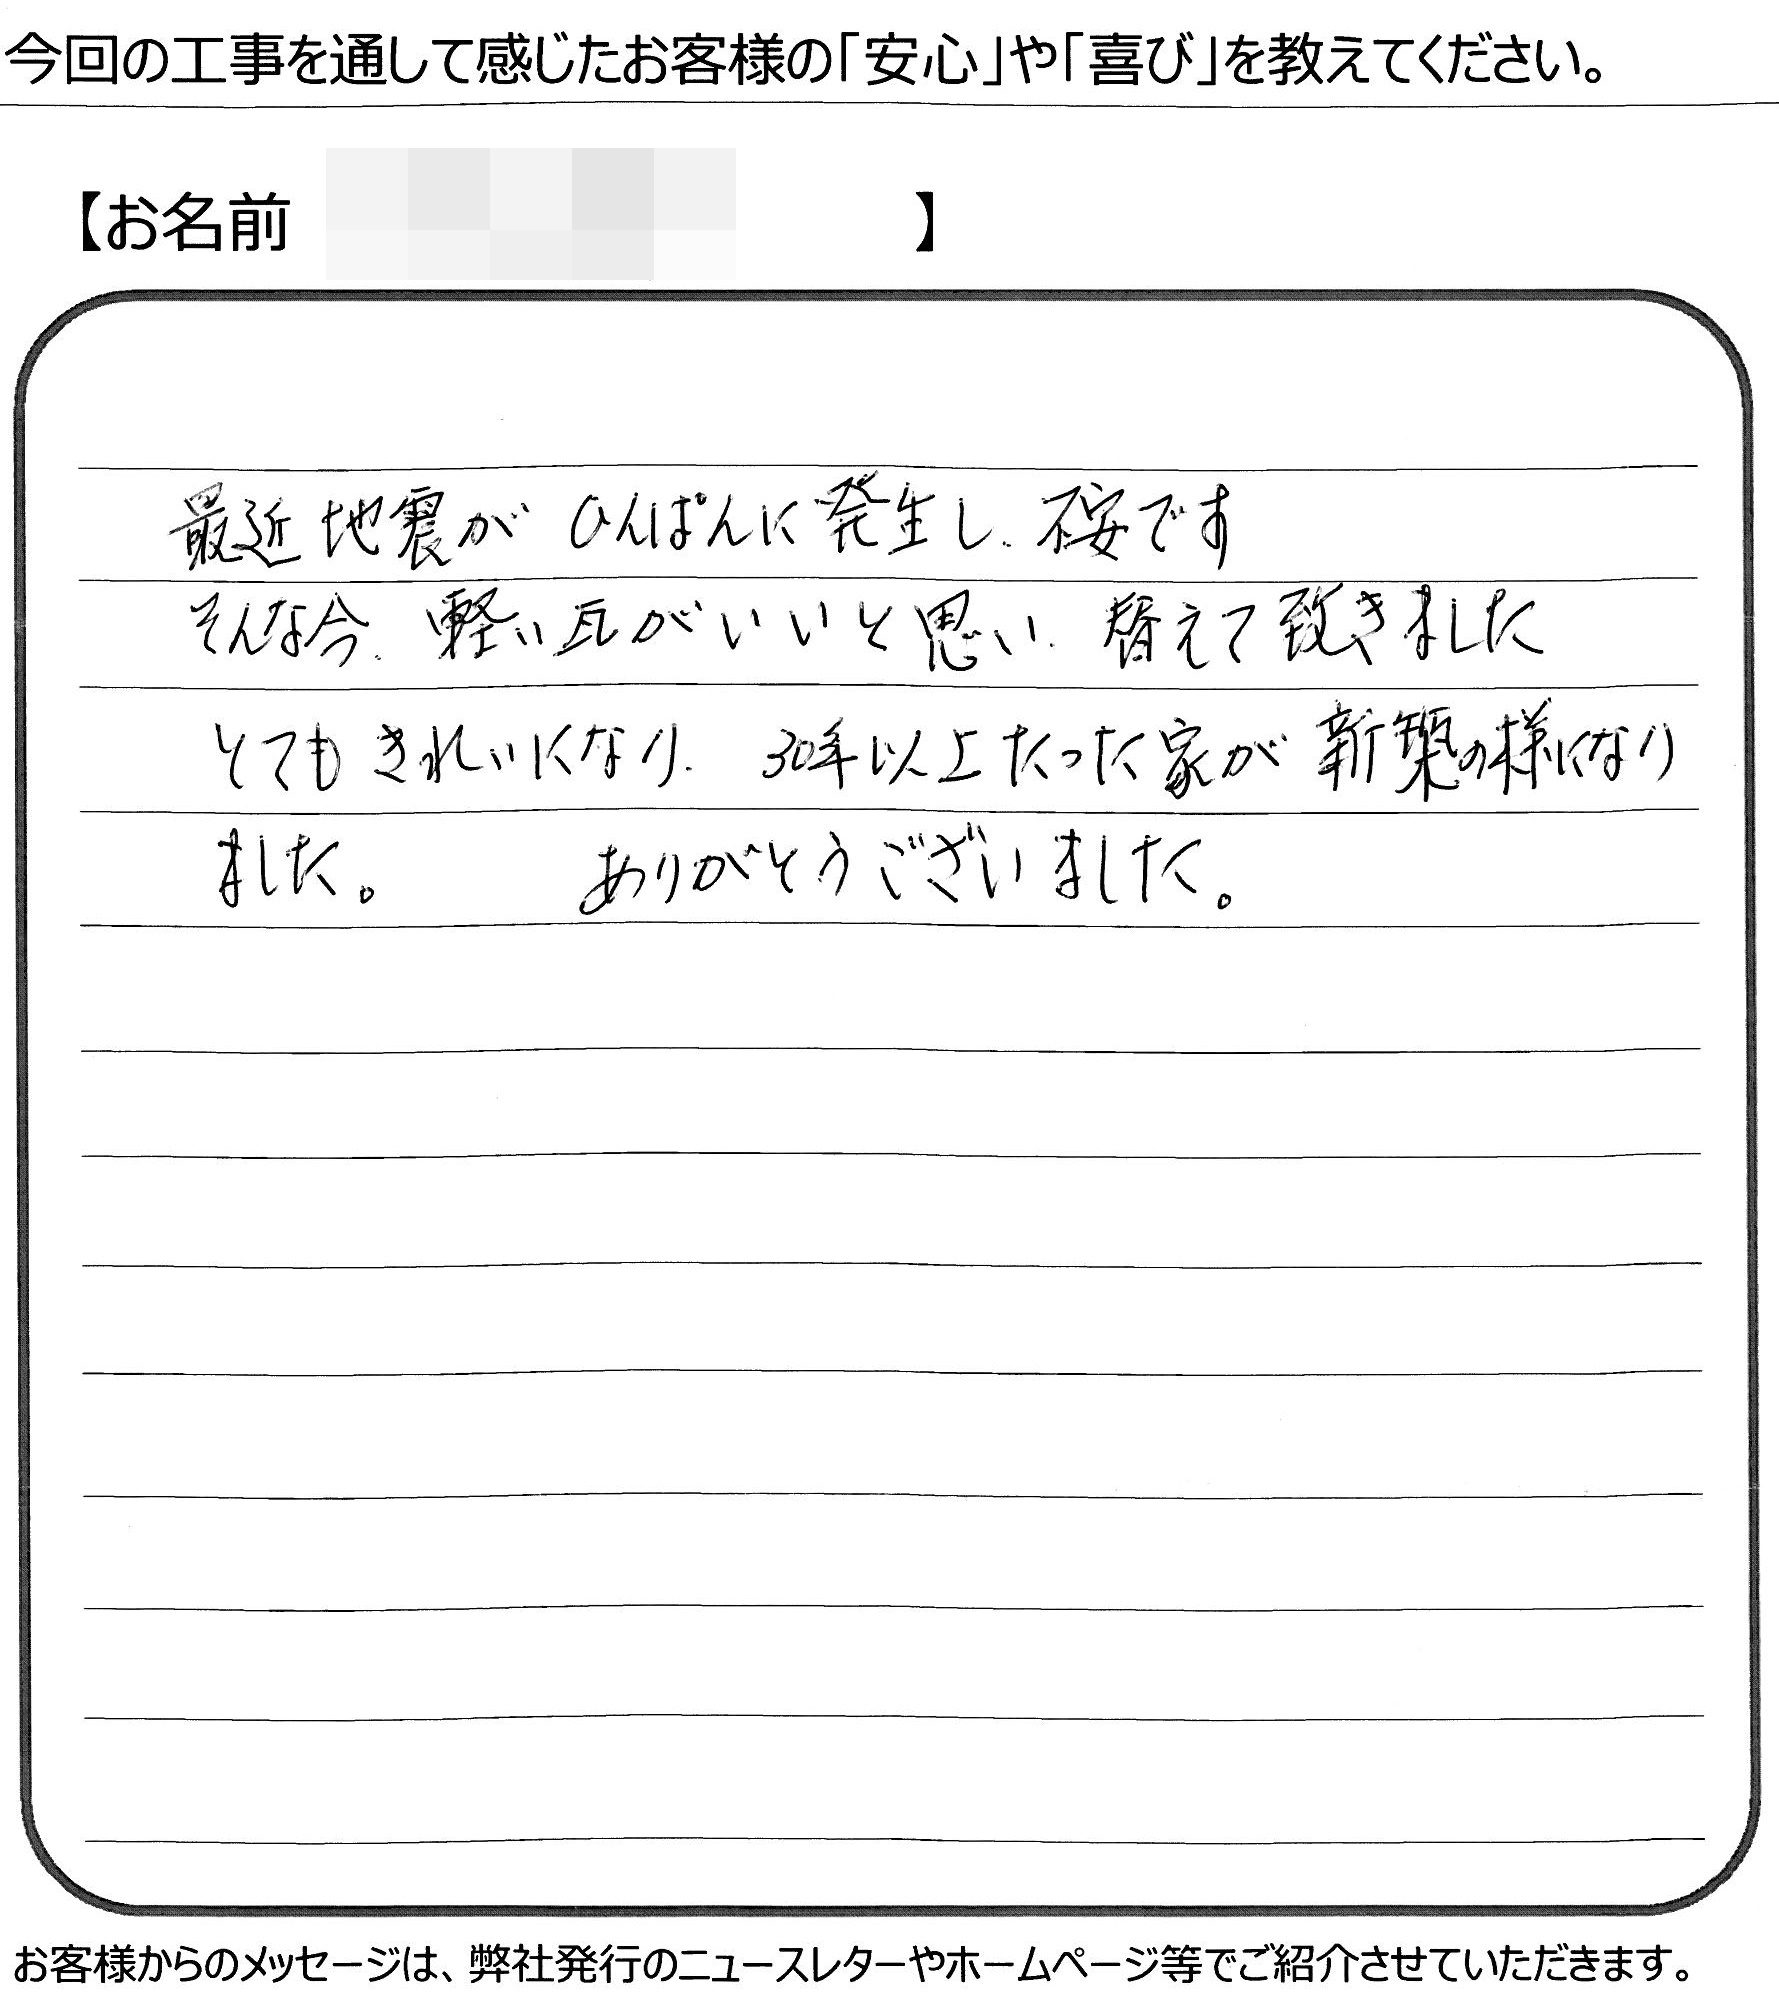 今回の工事を通して感じたお客様の「安心」や「喜び」を教えてください。
【お名前 】
最近地震がひんぱんに発生し、不安です
そんな今、軽い瓦がいいと思い、替えて致きました
とてもきれいになり、30年以上たった家が新築の様になり
ました。 ありがとうございました。
お客様からのメッセージは、弊社発行のニュースレターやホームページ等でご紹介させていただきます。